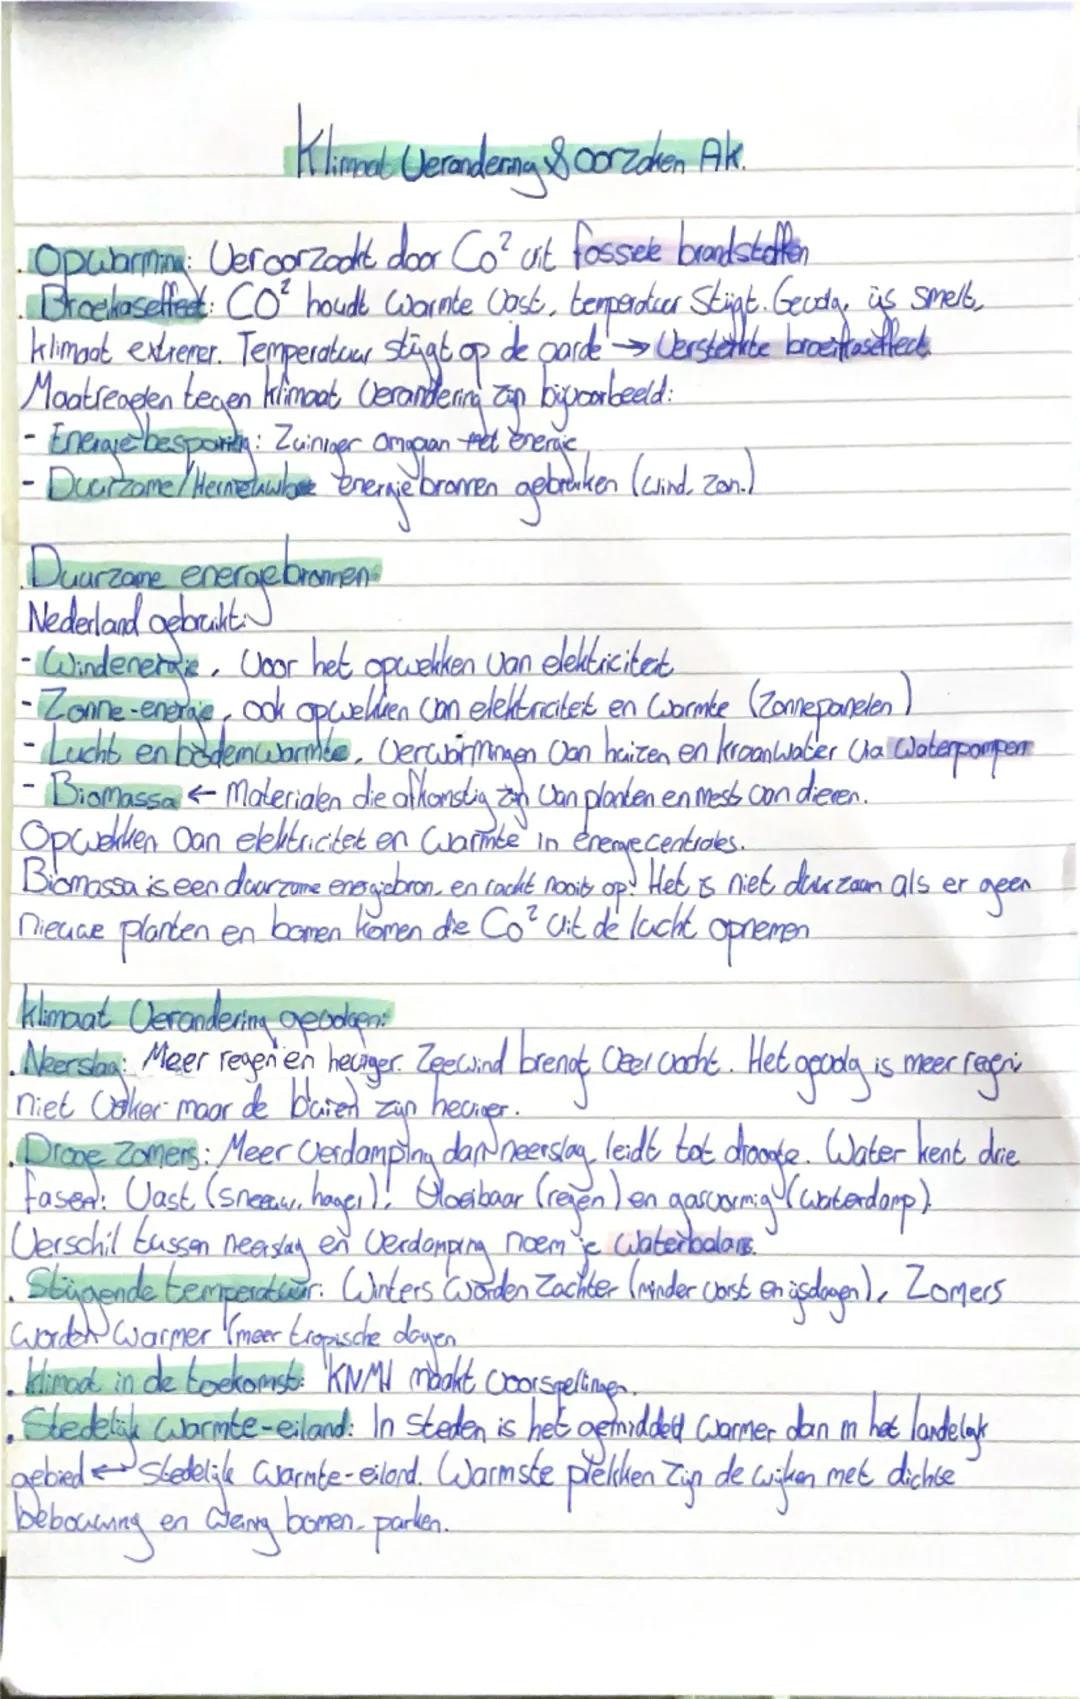 Klimaat Verandering & oorzaken Ak.
. Opwarming: Veroorzaakt door Co² uit fossiele brandstoffen
. Broeikaseffect: CO² houdt warmte vast, temperatuur stijgt. Gevolg, ijs smelt,
klimaat extremer. Temperatuur stijgt op de aarde → Versterkte broeikaseffect
Maatregelen tegen klimaat verandering zijn bijvoorbeeld:
- Energiebesparing: Zuiniger omgaan met energie
- Duurzame/Hernieuwbare energiebronnen gebruiken (wind, zon.)
. Duurzame energiebronnen:
Nederland gebruikt:
- Windenergie, Voor het opwekken van elektriciteit
- Zonne-energie, ook opwekken van elektriciteit en warmte (Zonnepanelen)
- Lucht en bodemwarmte, Verwarmingen van huizen en kraanwater via Waterpompen
- Biomassa ← Materialen die afkomstig zijn van planten en mest van dieren.
Opwekken van elektriciteit en warmte in energiecentrales.
Biomassa is een duurzame energiebron, en raakt nooit op! Het is niet duurzaam als er geen
nieuwe planten en bomen komen die Co² uit de lucht opnemen
Klimaat Verandering gevolgen:
. Neerslag: Meer regen en heviger. Zeewind brengt veel vocht. Het gevolg is meer regen
niet vaker maar de buien zijn heviger.
. Droge zomers: Meer verdamping dan neerslag, leidt tot droogte. Water kent drie
fasen: Vast (sneeuw, hagel), Vloeibaar (regen) en gasvormig (waterdamp).
Verschil tussen neerslag en verdamping noem je waterbalans.
. Stijgende temperatuur: Winters worden zachter (minder vorst en ijsdagen), Zomers
worden warmer (meer tropische dagen
. Klimaat in de toekomst: KNMI maakt voorspellingen.
. Stedelijk warmte-eiland: In steden is het gemiddeld warmer dan in het landelijk
gebied ↔ Stedelijk warmte-eiland. Warmste plekken zijn de wijken met dichte
bebouwing en weinig bomen, parken.